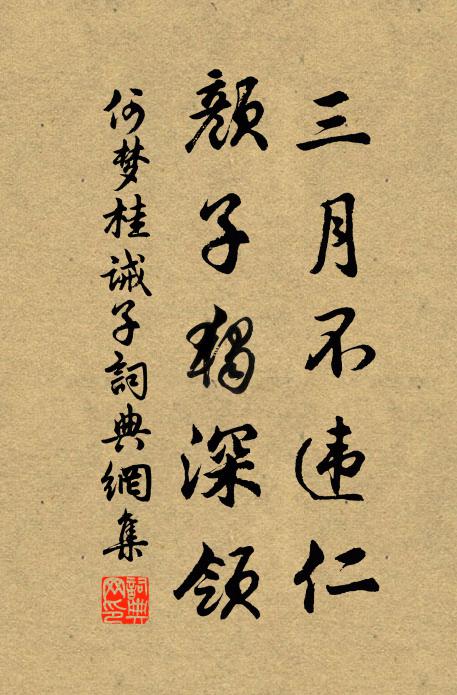 三月不违仁
颜子獨深领
何梦桂诫子詞典網集
詞典网印